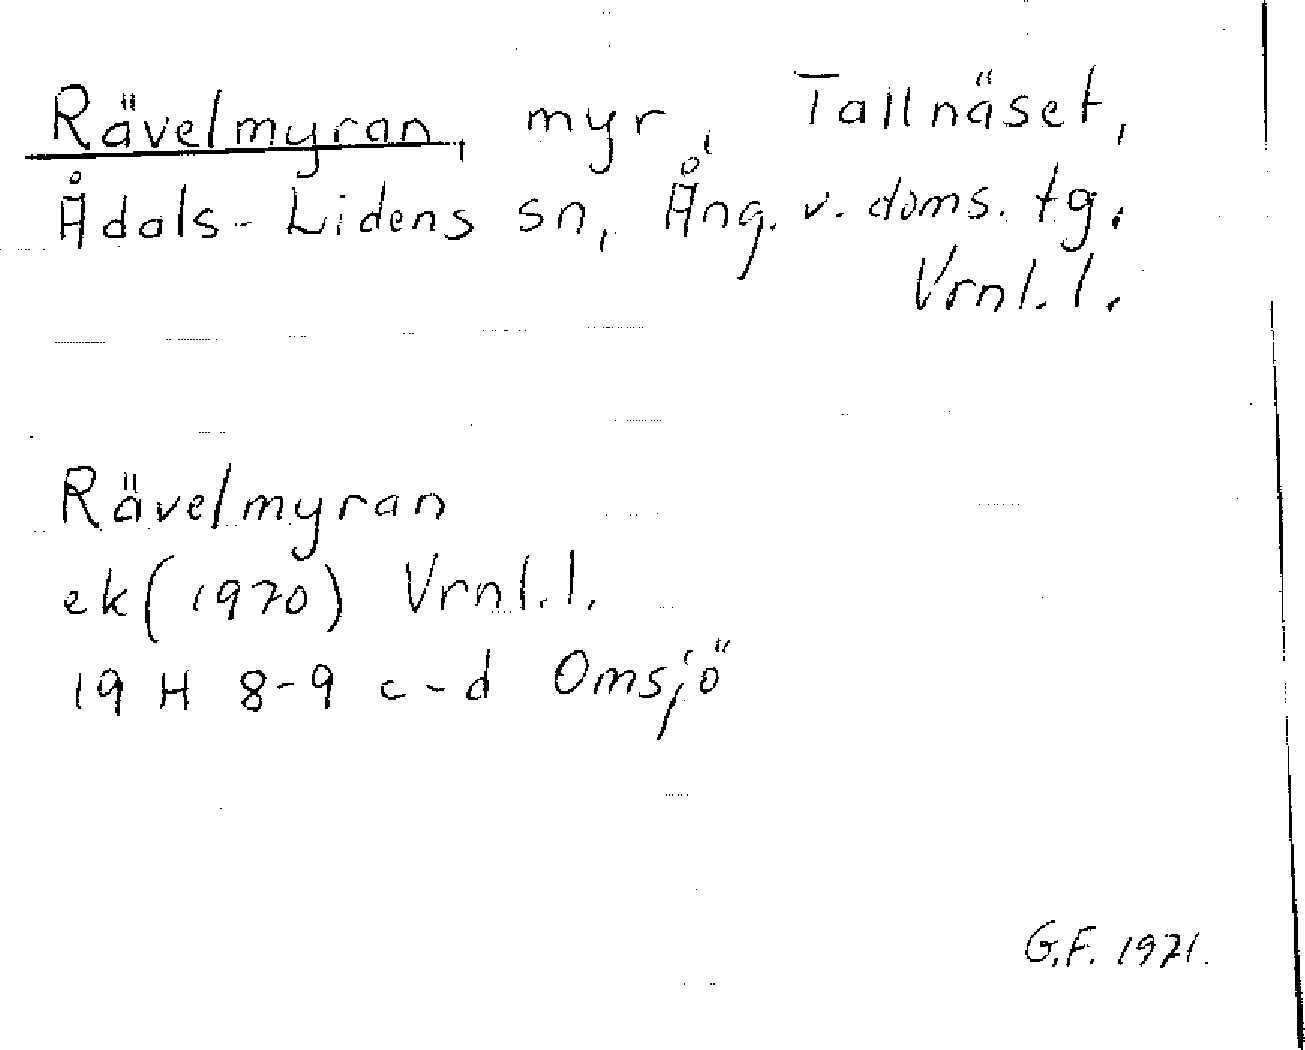 Rävelmyran, myr, Tallnäset,
Ådals-Lidens sn, Ång. v. doms. tg.
Vrnl. l.
Rävelmyran
ek (1970) Vrnl. l.
19 H 8-9 c-d Omsjö
G.F. 1971.